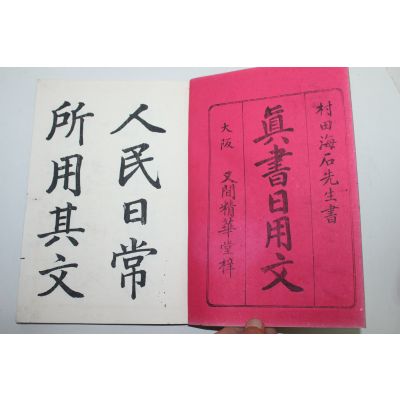 村田海石先生書
眞書日用文
大阪 又間精華堂梓
人民日常
所用其文